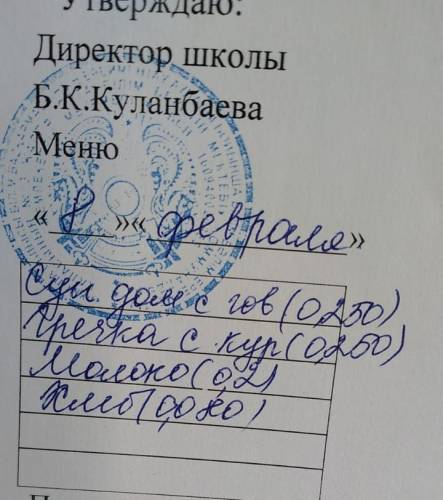 Утверждаю:
Директор школы
Б.К.Куланбаева
Меню
« 8 »« февраля »
Суп дом с гов (0,250)
Гречка с кур (0,250)
Молоко (0,2)
Хлеб (0,080)